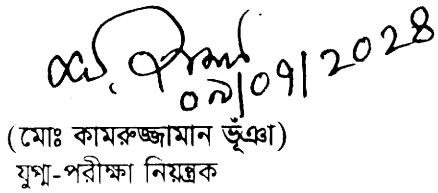 ০৯/০৭/২০২৪
(মোঃ কামরুজ্জামান ভূঁঞা)
যুগ্ম-পরীক্ষা নিয়ন্ত্রক